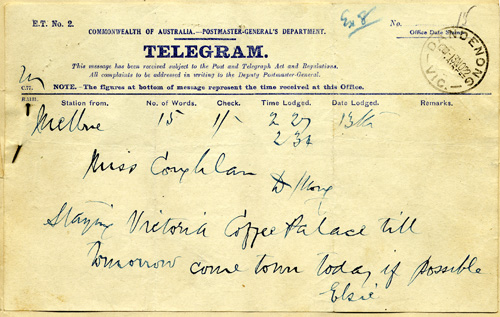 E.T. No. 2.
Ex 8
No.
15
COMMONWEALTH OF AUSTRALIA.—POSTMASTER-GENERAL'S DEPARTMENT.
Office Date Stamp.
TELEGRAM.
DANDENONG
VIC.
This message has been received subject to the Post and Telegraph Act and Regulations.
All complaints to be addressed in writing to the Deputy Postmaster-General.
C.77.
NOTE.—The figures at bottom of message represent the time received at this Office.
Station from. No. of Words. Check. Time Lodged. Date Lodged. Remarks.
Melbne 15 1/- 2 27 13th
2 34
Miss Coughlan
D Nong
Staying Victoria Coffee Palace till
tomorrow come town today if possible
Elsie